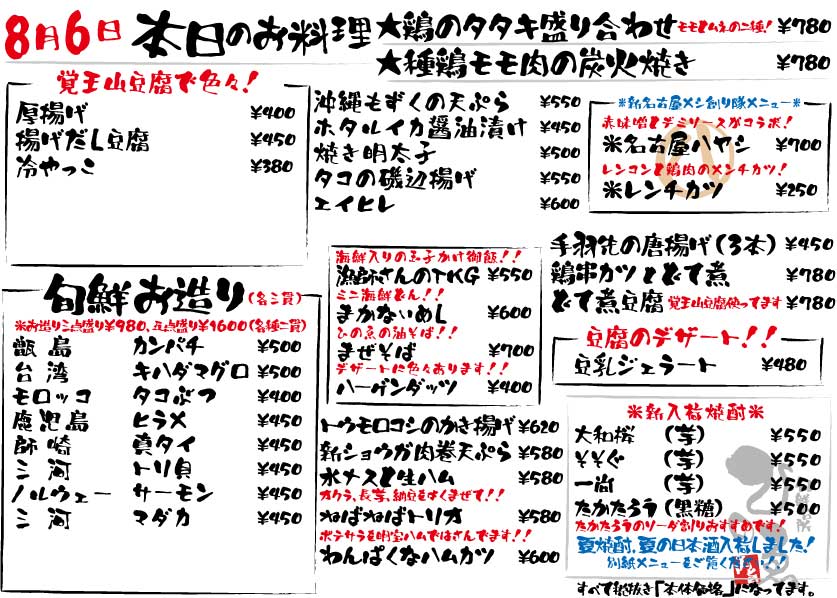 8月6日 本日のお料理
★鶏のタタキ盛り合わせ モモとムネの二種! ¥780
★種鶏モモ肉の炭火焼き ¥780
覚王山豆腐で色々!
厚揚げ ¥400
揚げだし豆腐 ¥450
冷やっこ ¥380
沖縄もずくの天ぷら ¥550
ホタルイカ醤油漬け ¥450
焼き明太子 ¥500
タコの磯辺揚げ ¥550
エイヒレ ¥600
※新名古屋メシ創り隊メニュー※
赤味噌とデミソースがコラボ!
※名古屋ハヤシ ¥700
レンコンと鶏肉のメンチカツ!
※レンチカツ ¥250
手羽先の唐揚げ(3本) ¥450
鶏串カツとどて煮 ¥780
どて煮豆腐 覚王山豆腐使ってます ¥780
豆腐のデザート!!
豆乳ジェラート ¥480
旬鮮お造り(各三貫)
※お造り三点盛り¥980、五点盛り¥1600(各種二貫)
甑島 カンパチ ¥500
台湾 キハダマグロ ¥500
モロッコ タコぶつ ¥400
鹿児島 ヒラメ ¥450
師崎 真タイ ¥450
三河 トリ貝 ¥450
ノルウェー サーモン ¥450
三河 マダカ ¥450
海鮮入りの玉子かけ御飯!!
漁師さんのTKG ¥550
ミニ海鮮どん!!
まかないめし ¥600
ひの魚の油そば!!
まぜそば ¥700
デザートに色々あります!!
ハーゲンダッツ ¥400
トウモロコシのかき揚げ ¥620
新ショウガ肉巻天ぷら ¥580
水ナスと生ハム ¥580
オクラ、長芋、納豆をよくまぜて!!
ねばねばトリオ ¥580
ポテサラを明宝ハムではさんでます!!
わんぱくなハムカツ ¥600
※新入荷焼酎※
大和桜 (芋) ¥550
そそぐ (芋) ¥550
一尚 (芋) ¥550
たかたろう(黒糖) ¥500
たかたろうのソーダ割りおすすめです!
夏焼酎、夏の日本酒入荷しました!
別紙メニューをご覧ください!!
すべて税抜き「本体価格」になってます。